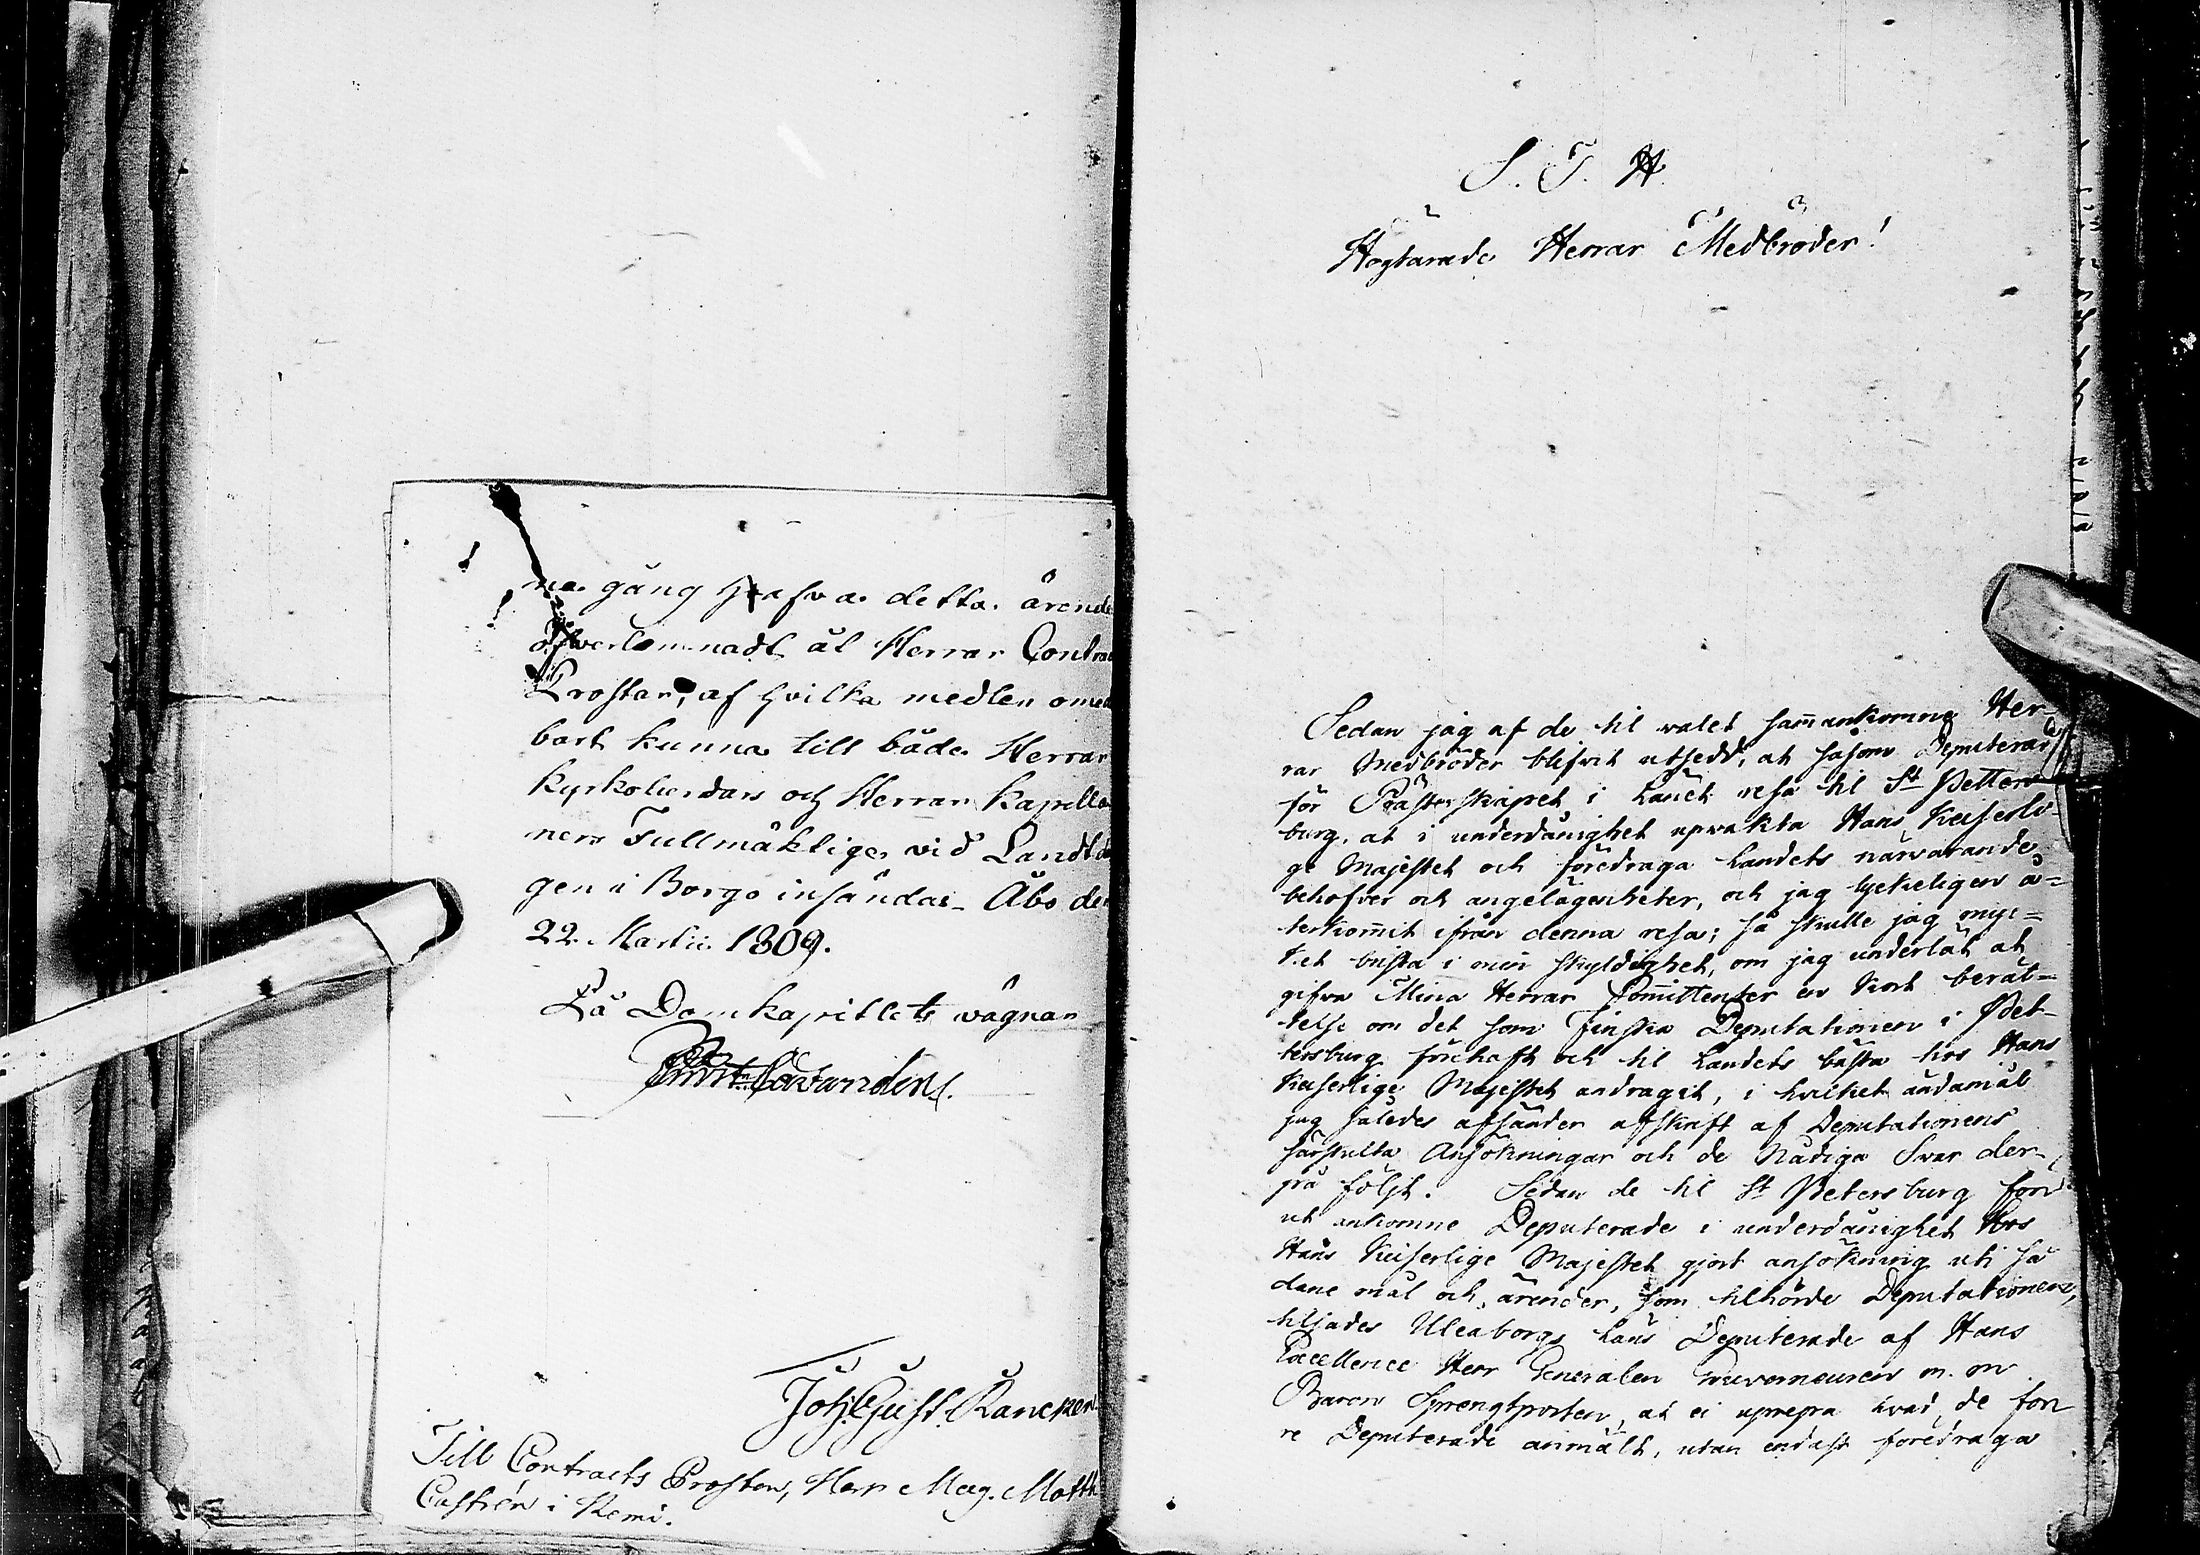 na gång hafva detta ärende
öfverlemnadt åt Herrar Contrac
Prostar, af hvilka medlen omed
bart kunna till både Herrar
Kyrkoherdars och Herrar Kapella
ners Fullmäktige vid Landtda
gen i Borgo insändas. Åbo den
22. Martii 1809.
På Domkapitlets vägnar
Joh. Gust. Rancken
Till Contracts Prosten, Herr Mag. Matth
Castrén i Kemi.
S. T. H.
Högtärade Herrar Medbröder!
Sedan jag af de til valet sammankomne Her-
rar Medbröder blifvit utsedd, at såsom Deputerad
för Prästerskapet i Länet resa til St Petters-
burg, at i underdånighet upvakta Hans Keiserli-
ge Majestet och föredraga Landets närvarande
behofver och angelägenheter, och jag lyckeligen å-
terkommit ifrån denna resa; så skulle jag myc-
ket brista i min skyldighet, om jag underlät at
gifva Mina Herrar Committenter en kort berät-
telse om det som Finska Deputationen i Pet-
tersburg förehaft och til Landets bästa hos Hans
Keiserlige Majestet andragit, i hvilket ändamål
jag således afsänder afskrift af Deputationens
särskilta Ansökningar och de Nådiga Svar der-
på följt. Sedan de til St Petersburg förr
ut ankomne Deputerade i underdånighet hos
Hans Keiserlige Majestet gjort ansökning uti så
dane mål och ärender, som tilhörde Deputationen,
tilsades Uleåborgs Läns Deputerade af Hans
Excellence Herr Generalen Gouverneuren m. m
Baron Sprengtporten, at ei uprepa hvad de för
re Deputerade anmält, utan endast föredraga